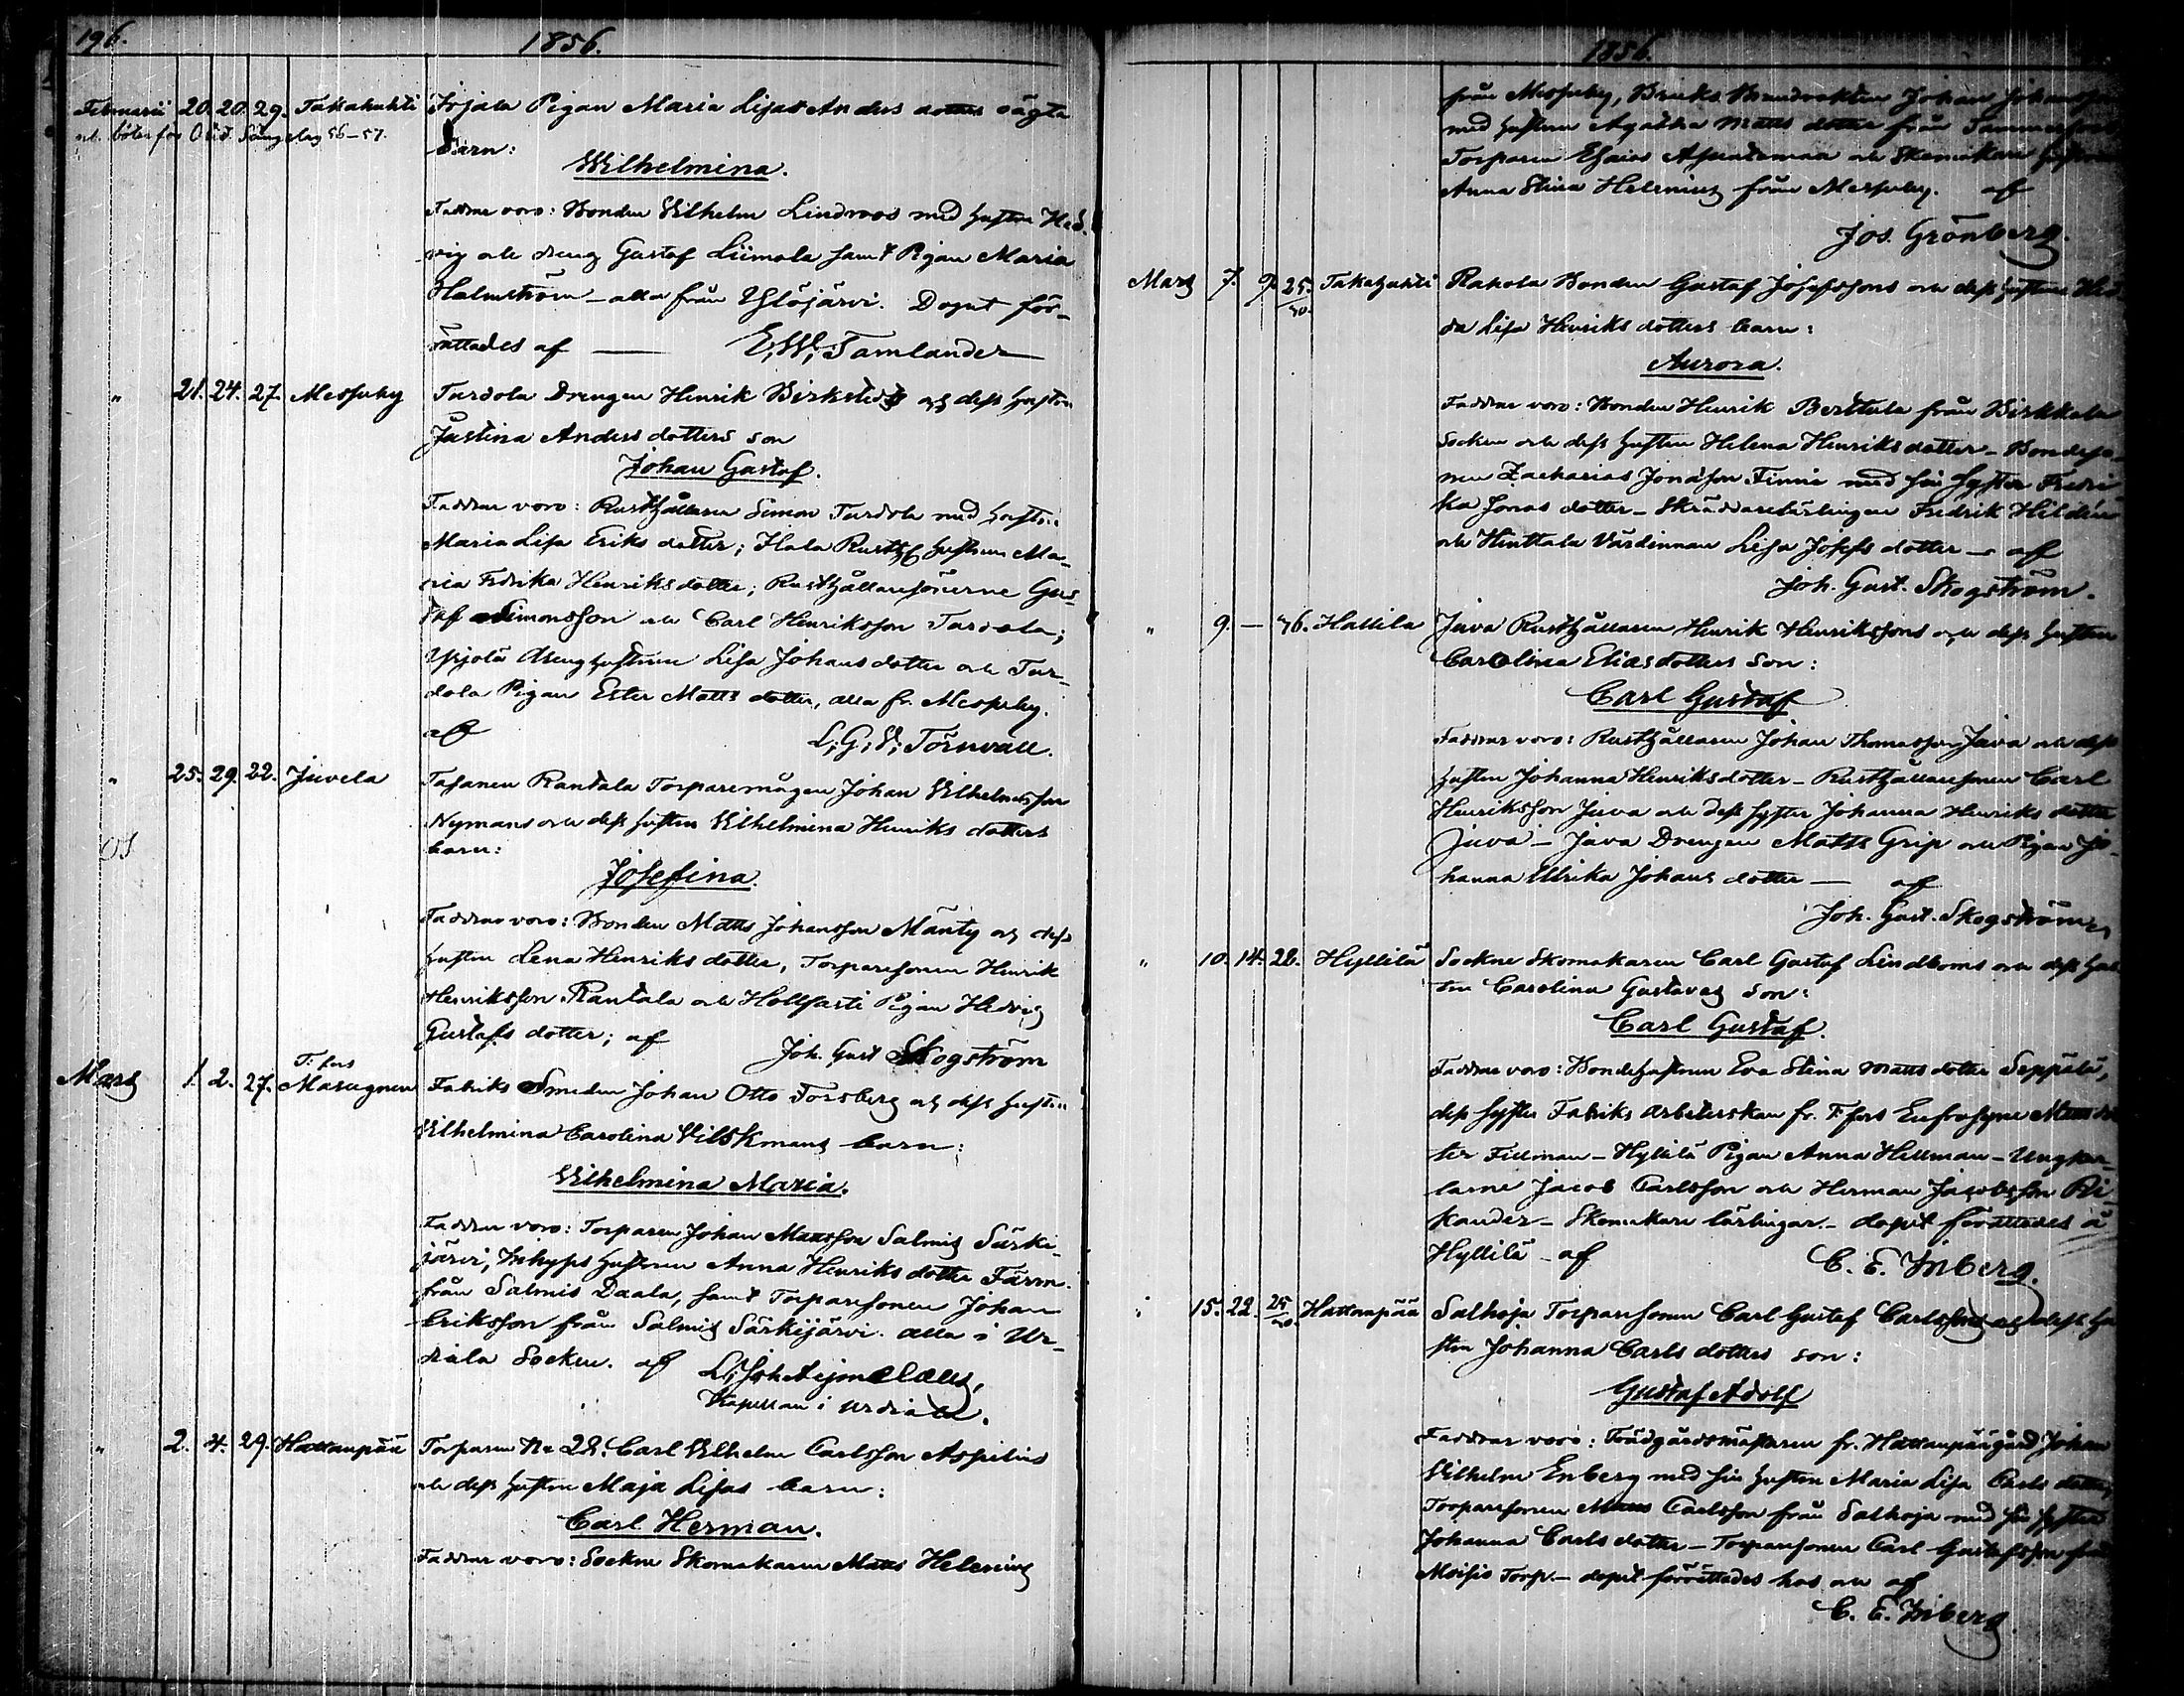 196.
1856.
Februarii 20. 20. 29. Takahuhti Irjala Pigan Maria Lisas Anders dotters oägta
barn:
Wilhelmina.
Faddrar voro: Bonden Vilhelm Lindroos med hustru Hed-
vig och dreng Gustaf Liimola samt Pigan Maria
Holmström - alla från Ylöjärvi. Dopet för-
rättades af — E; W; Tamlander
" 21. 24. 27. Messuby Turdola Drengen Henrik Birkstedt och dess hustru
Justina Anders dotters son
Johan Gustaf.
Faddrar voro: Rusthållaren Simon Turdola med hustru
Maria Lisa Eriks dotter; Hala Rusth hustrun Ma-
ria Fredrika Henriksdotter; Rusthållaresönerne Gus-
taf Simonsson och Carl Henriksson Turdola;
Yrjölä Drenghustrun Lisa Johans dotter och Tur-
dola Pigan Ester Matts dotter, alla fr. Messuby.
af L; G; V; Törnvall.
" 25. 29. 22. Juvela Tasanen Rantala Torparemågen Johan Vilhelmsson
Nymans och dess hustru Vilhelmina Henriks dotters
barn:
Josefina.
Faddrar voro: Bonden Matts Johansson Mänty och dess
hustru Lena Henriks dotter, Torparesonen Henrik
Henriksson Rantala och Hollfasti Pigan Hedvig
Gustafs dotter; af Joh. Gust Skogström
T: fors
Mars 1. 2. 27. Masugnen Fabriks Smeden Johan Otto Forsberg och dess hustru
Vilhelmina Carolina Vilskmans barn:
Vilhelmina Maria.
Faddrar voro: Torparen Johan Mattsson Salmis Särki-
järvi, Inhyses hustrun Anna Henriks dotter Färm
från Salmis Daala, samt Torparesonen Johan
Eriksson från Salmis Särkijärvi. alla i Ur-
diala Socken. af
Kapellan i Urdiala.
" 2. 4. 29. Hattanpää Torparen No 28. Carl Vilhelm Carlsson Aspelins
och dess hustru Maja Lisas barn:
Carl Herman.
Faddrar voro: Sockne Skomakaren Matts Helenius
1856.
från Messuby, Bruks Brandvakten Johan Johansson
med hustrun Agatha Matts dotter från Tammerfors
Torparen Esaias och Skomakare hustrun
Anna Stina Helenius från Messuby. af
Jos. Grönberg.
Mars 7. 9. 25./40. Takahuhti Rahola Bonden Gustaf Josefssons och dess hustrus Hed-
da Lisa Henriks dotters barn:
Aurora.
Faddrar voro: Bonden Henrik Berttula från Birkkala
Socken och dess hustru Helena Henriks dotter - Bondeso-
nen Zacharias Jonasson Finni med sin syster Fredri-
ka Jonas dotter - Skräddarelärlingen Fredrik Hildén
och Hinttala Värdinnan Lisa Josefs dotter - af
Joh. Gust. Skogström.
" 9. — 46. Hallila Juva Rusthållaren Henrik Henrikssons och dess hustru
Carolina Elias dotters Son:
Carl Gustaf
Faddrar voro: Rusthållaren Johan Thomasson Juva och dess
hustru Johanna Henriksdotter - Rusthållaresonen Carl
Henriksson Juva och dess syster Johanna Henriks dotter
Juva - Juva Drengen Matts Grip och Pigan Jo-
hanna Ulrika Johans dotter — af
Joh. Gust. Skogström
" 10. 14. 28. Hyllilä Sockne Skomakaren Carl Gustaf Lindboms och dess hus-
tru Carolina Gustavas son:
Carl Gustaf.
Faddrar voro: Bondehustrun Eva Stina Matts dotter Seppälä,
dess syster Fabriks arbeterskan fr. T. fors Eufrosyne Matts dot-
ter Fillman - Hyllilä Pigan Anna Hellman - Ungkar-
larne Jacob Carlsson och Herman Jacobsson Ri-
kander - Skomakare lärlingar - dopet förrättades å
Hyllilä - af C. E. Inberg.
" 15. 22. 25/40. Hattanpää Salhoja Torparesonen Carl Gustaf Carlssons och dess hu-
stru Johanna Carls dotters son:
Gustaf Adolf
Faddrar voro: Trädgårdsmästaren fr. Hattanpäägård Johan
Vilhelm Enberg med sin hustru Maria Lisa Carls dotter,
Torparesonen Matts Carlsson från Salhoja med sin syster
Johanna Carls dotter - Torparesonen Carl Gustafsson från
Moisio Torp. - dopet förrättades hos och af
C. E. Inberg.